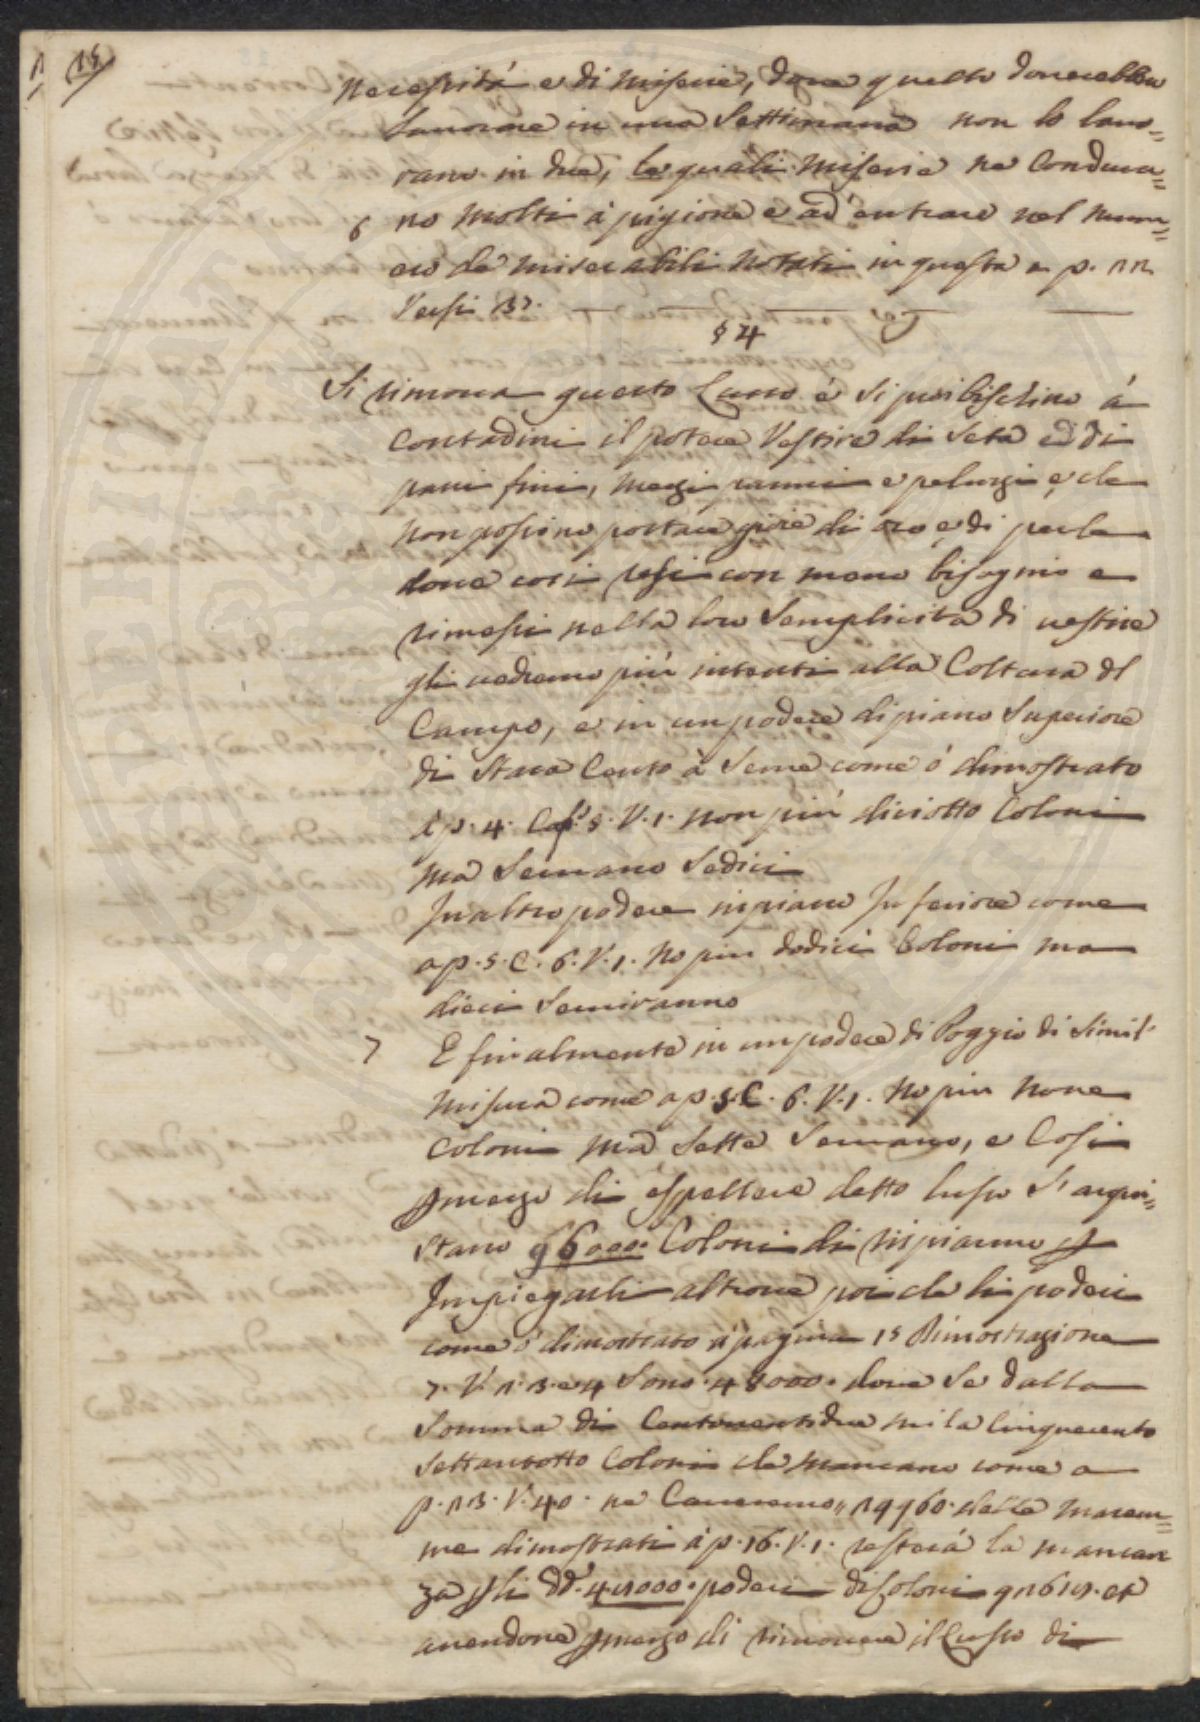 15
Necessità e di Miserie, dove quello doverebbero
lavorare in una Settimana non lo lavo=
rano in due, le quali Miserie ne Conduca=
6 no molti à pigione e ad' entrare nel num=
ero de miserabili Notati in questa a p.
Versi 37.
§ 4
Si rimova questo Lusso è si proibischino à
Contadini il potere Vestire di Seta ed di
pani fini, e che
non possino portare gioie di oro e di perle
dove così resi con meno bisogni e
rimessi nella loro Semplicità di vestire
gli vedremo più intenti alla Coltura del
Campo, e in un podere di piano Superiore
di Staia Cento à Seme come ò dimostrato
à p. 4. V. 1. non più diciotto Coloni
Ma Servano Sedici
In altro podere in piano Inferiore come
a p. 5. C. 6. V. 1. No più dodici Coloni ma
dieci Serviranno
7 E finalmente in un podere di Poggio di Simil'
Misura come a p. 5. C. 6. V. 1. No più Nove
Coloni Ma Sette Servano, e Così
di espellere detto lusso S'aqui=
stano 96000. Coloni di rispiarmo
Impiegarli altrove poi che li poderi
come ò dimostrato à pagina 15 Dimostrazione
7. V. e 4 Sono 48000. dove Se dalla
Somma di Centoventidue mila Cinquecento
Settantotto Coloni che mancano come a
p. V. 40. ne Caveremo 19960. delle Marem=
me dimostrati à p. 16. V. 1. resterà la mancan
za poderi di Coloni et
avendone di rimovere il Lusso di